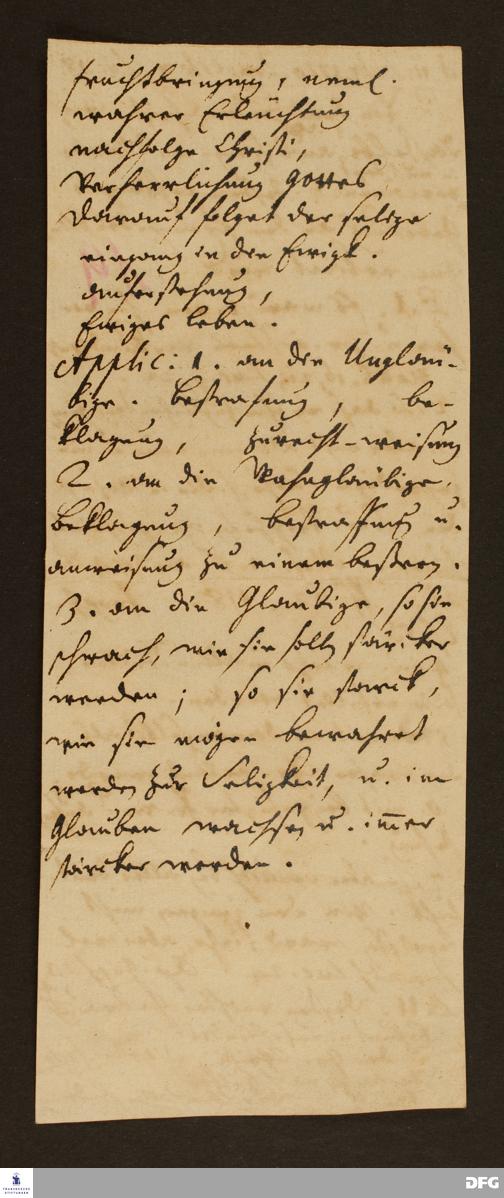 fruchtbringung, neml.
wahrer Erleuchtung
nachfolge Christi,
Verherrlichung Gottes
darauf folget der selige
eingang in die Ewigk.
auferstehung,
Ewiges leben.
Applic: 1. an die Unglaü-
bige. bestrafung, be-
klagung, zurecht-weisung
2. an die Wahngläubige,
beklagung, bestraffung u.
anweisung zu einem bessern.
3. an die Glaubige, so sie
schwach, wie sie solln stärcker
werden; so sie starck,
wie sie mögen bewahret
werden zur Seligkeit, u. im
Glauben wachsen u. im̅er
stärcker werden.
FRANCKESCHE
STIFTUNGEN
DFG